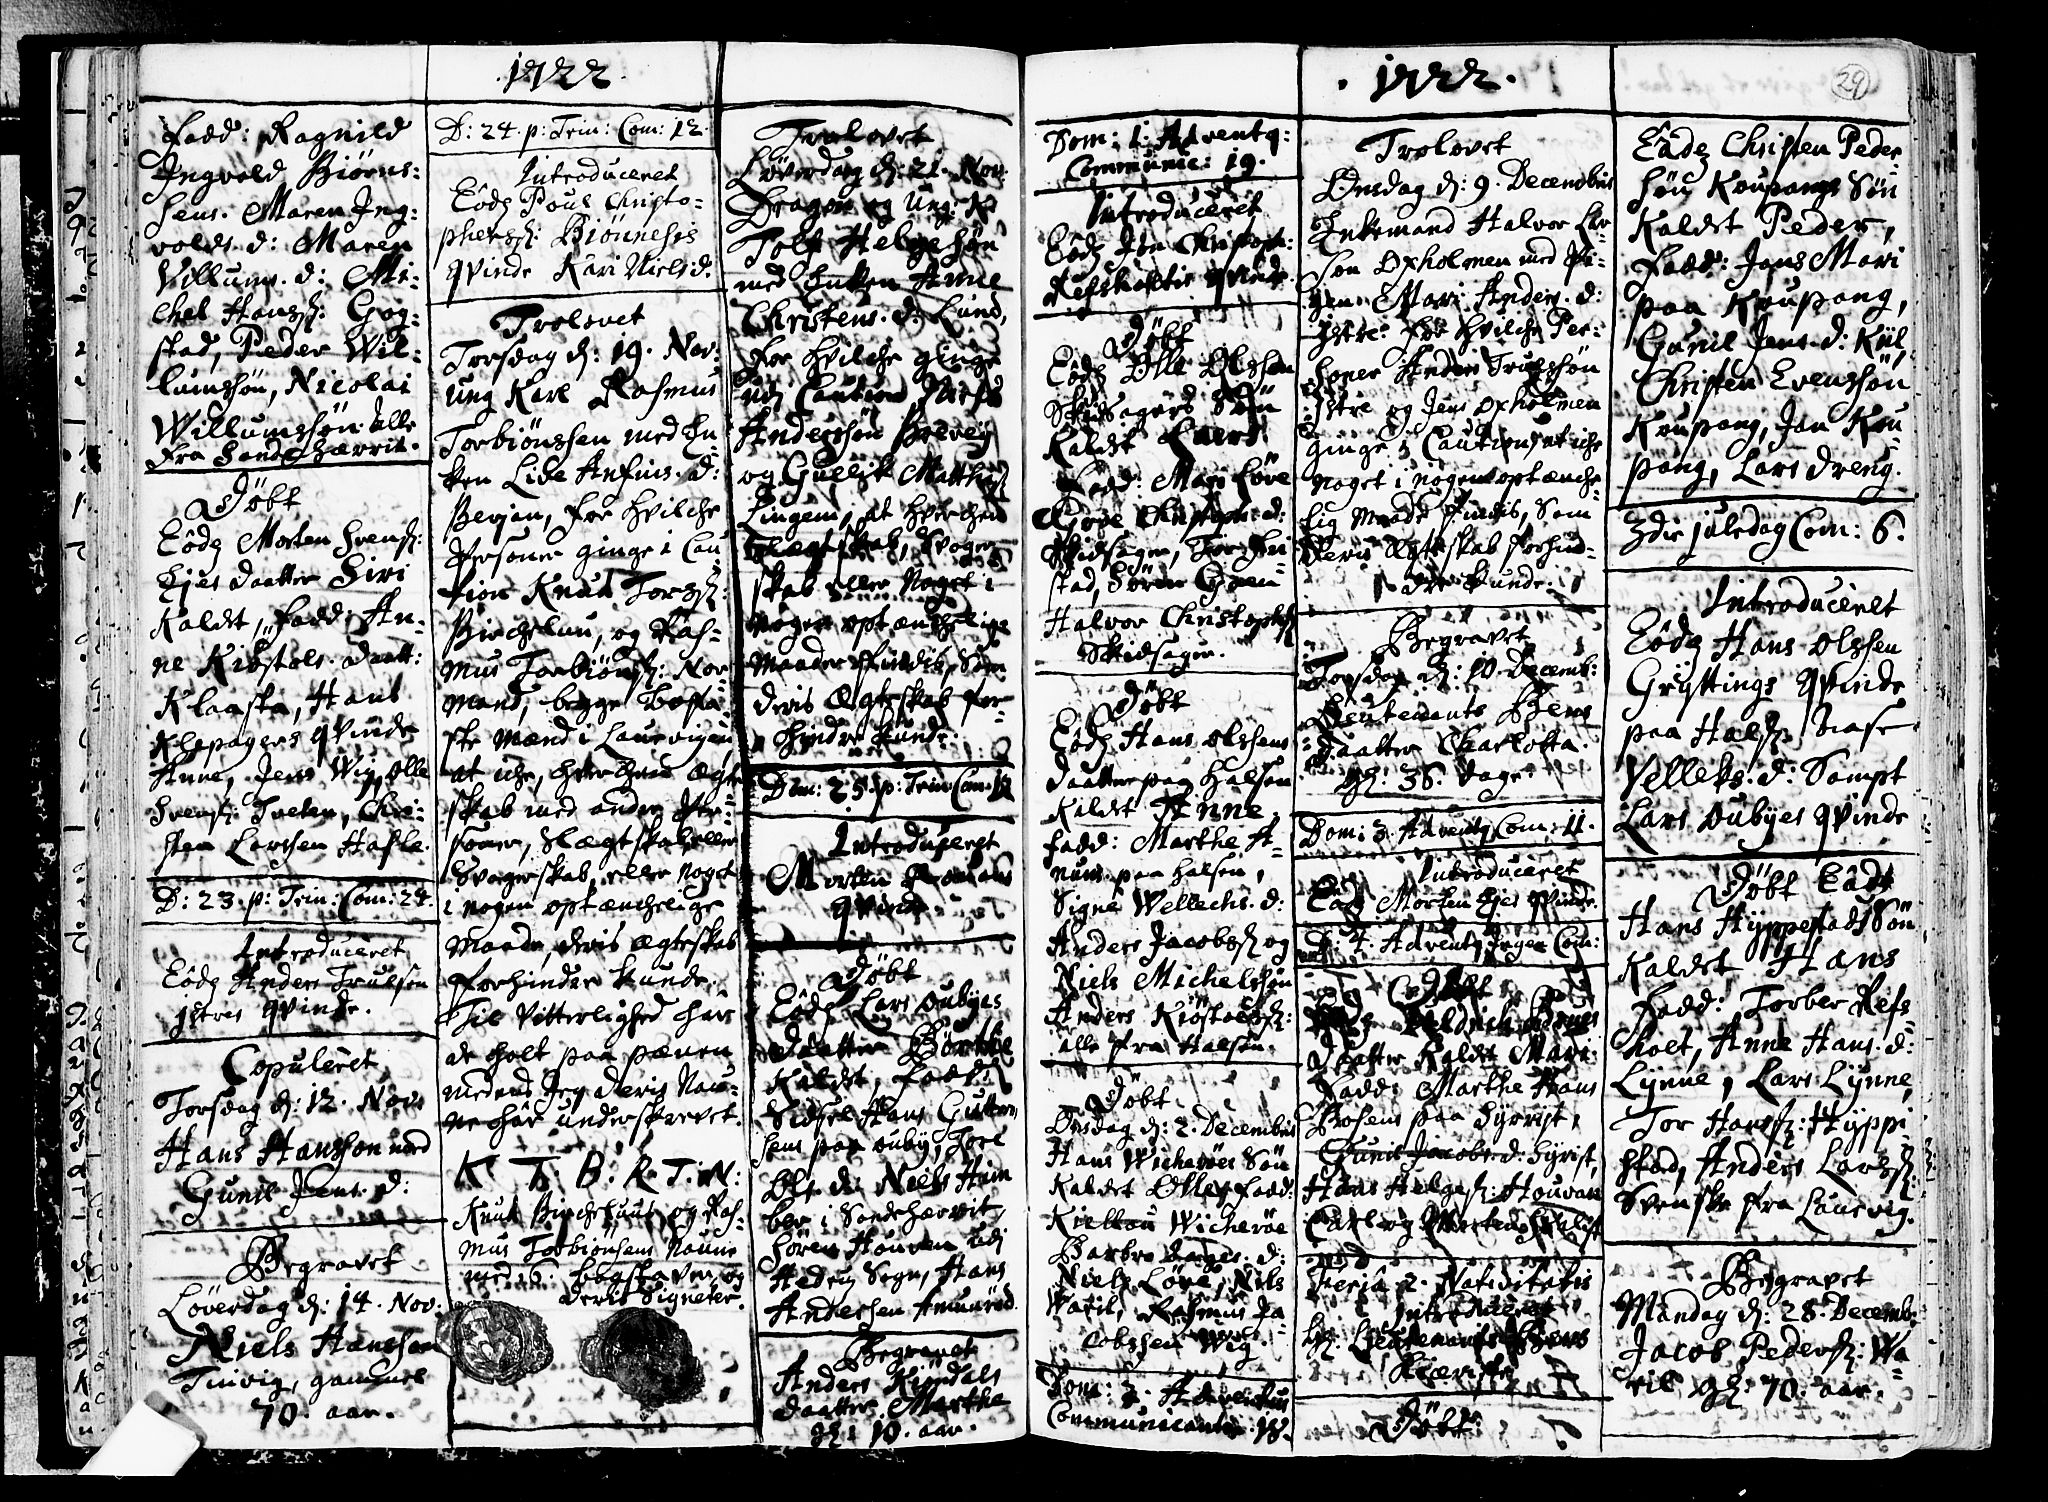 1722.
Fadd: Ragnild
Ingvold Biörns:
sens. Maren Ing-
volds. d: Maren
Villums. d: Mi-
chel Hanss: Gog-
stad, Peder Wil-
lumssön, Nicolai
Willumssön. Alle
fra Sandeherrit.
Döbt
Eöds Morten Svens:
Ejes daatter Siri
Kaldt, Fadd: An-
ne Kiöstols. daatt:
Klaasta, Hans
Klepagers qvinde
Anne, Jens Wig, Olle
Svens: Tveten, Chri-
sten Larssen Hasle.
D: 23. p: Trin: Com: 24.
Introduceret
Eöds Anders Trulsen
Istres qvinde.
Copuleret
Torsdag d: 12. Nov:
Hans Hanssön med
Gunil Jens. d:
Begravet
Löverdag d: 14. Nov:
Niels Hanssen
Tinvig, gammel
70. aar.
D: 24. p: Trin: Com: 12.
Introduceret
Eöds Pouls Christo-
phers: Biönnesis
qvinde Kari Niels d.
Trolovet
Torsdag d: 19. Nov:
Ung Karl Rasmus
Torbiönssen med En-
ken Live Anfins. d:
Berjan, for hvilche
Personer ginge i Cau-
tion Knud Tors:
Bircheluu, og Ras-
mus Torbiöns: Nor-
mand, begge Bosa-
ste Mænd i Laurvigen
at iche, hverchen ægte
skab med andre Per-
soner, Slægtskab eller
Svogerskab, eller noget
i nogen optænchelige
Maade, deris ægteskab
forhindre kunde.
Til Vitterlighed har
de holt paa pænen
medens Jeg deris Nau-
ne har underskrevet.
K. T. B. R. T. N:
Knut Bircheluus og Ras-
mus Torbiönsens Naune
med 6. bogstaver og
deris Signeter.
Trolovet
Löverdag d: 21. Nov:
Dragon og Ung K:
Tolf Helgesön
med Enken Anne
Christens. d: Lund,
for hvilche ginge
udi Caution Niels
Anderssön Brevig
og Gullik Matthis:
Lingem, at hverchen
Slægtskab, Svoger-
skab eller Noget i
Nogen optænchelige
Maader findis, Som
deris Ægteskab for-
hindre kunde.
Dom: 25. p: Trin: Com: 12
Introduceret
Morten
qvinde
Döbt
Eöds Lars Oubyes
daatter Börthe
Kaldt, Fadd:
Sidsel Hans Guttorm-
sens paa Ouby, Tore
Ols. d: Niels Him-
ber i Sandeherrit,
Sören Houven udi
Hedrum Sogn, Hans
Andersen Amunröd.
Begravet
Anders Kiöndals
daatter Marthe
gl: 10. aar.
1722.
29
Dom: 1: Advent9:
Communic: 19.
Introduceret
Eöds Jon Christoph:
Refsholtis qvinde
Döbt
Eöds Olle Olssen
Skidsagers Sön
Kaldt Lars
Fadd: Mari Löve
Gove Christophs d:
Skidsager, Tor Hni-
stad, Sören Goen-
Halvor Christophs:
Skidsager.
Döbt
Eöds Hans Olssens
daatter paa Halsen
Kaldt Anne
Fadd: Marthe A-
nuns paa Halsen,
Signe Wellechs. d:
Anders Jacobs: og
Niels Michelssön
Anders Kiöstols:
alle fra Halsen.
Döbt
Onsdag d: 2. Decembris
Hans Wicheröes Sön
Kaldt Olle, Fadd:
Kiellou Wicheröe
Barbro Dages. d:
Niels Löve, Nils
Waril, Rasmus Ja-
cobssen Wig.
Dom: 2. Adventus
Communicanter 18.
Trolovet
Onsdag d: 9. Decembris
Enkemand Halvor Lar-
sen Oxholmen med Pi-
gen Mari Anders. d:
Istre: for hvilche Per-
soner Anders Trulssön
Istre og Jens Oxholmen
ginge i Caution at iche
Noget i nogen optænche-
lig Maade findis, Som
deris Ægteskab forhin-
dre kunde.
Begravet
Torsdag d: 10. Decemb:
Leutenants Bens
daatter Charlotta.
gl: 36. dage
Dom: 3. Advent9 Com: 11.
Introduceret
Eöds Morten Ejes qvinde.
D: 4. Advent9 Ingen Com:
Döbt
daatter Kaldt Mari.
Fadd: Marthe Hans
Bosens paa Syrist,
Gunil Jacobs d: Syrist,
Hans Helges: Houvan
Carl og Morten
Feria 2. Nativitatis
Introduceret
Hr. Leutenants Bens
Kiæreste
Döbt
Eöds Christen Peder-
sön Koupangs Sön
Kaldet Peder,
Fadd: Jens Mari
paa Koupang,
Gunil Jens. d: Kiil
Christen Evenssön
Koupang, Jan Kou-
pang, Lars Dreng.
3die juledag Com: 6.
Introduceret
Eöds Hans Olssen
Gryttings qvinde
paa Hals:
Velleks. d: Sampt
Lars Oubyes qvinde
Döbt Eöds
Hans Hyppestads Sön
Kaldet Hans
Fadd: Torber Refs-
holt, Anne Hans. d:
Lynne, Lars Lynne,
Tor Hans: Hyppi-
stad, Anders Lars:
Svenske fra Laurvig.
Begravet
Mandag d: 28. Decemb:
Jacob Peders: Wa-
ril gl: 70. aar.